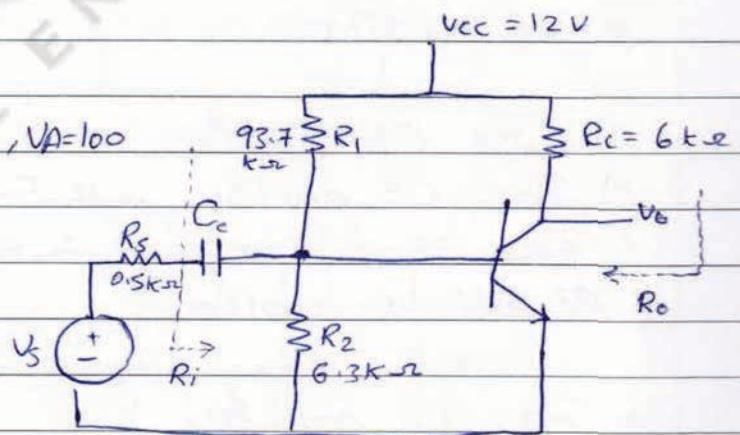 VCC = 12 V
, VA=100
93.7 kΩ
R1
RC = 6 kΩ
Cc
Rs
0.5kΩ
Vo
Ro
Vs
+
-
Ri
R2
6.3KΩ